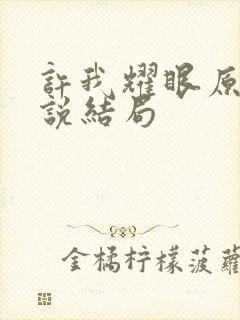 許我耀眼原
說結局
金橘柠檬菠蘿